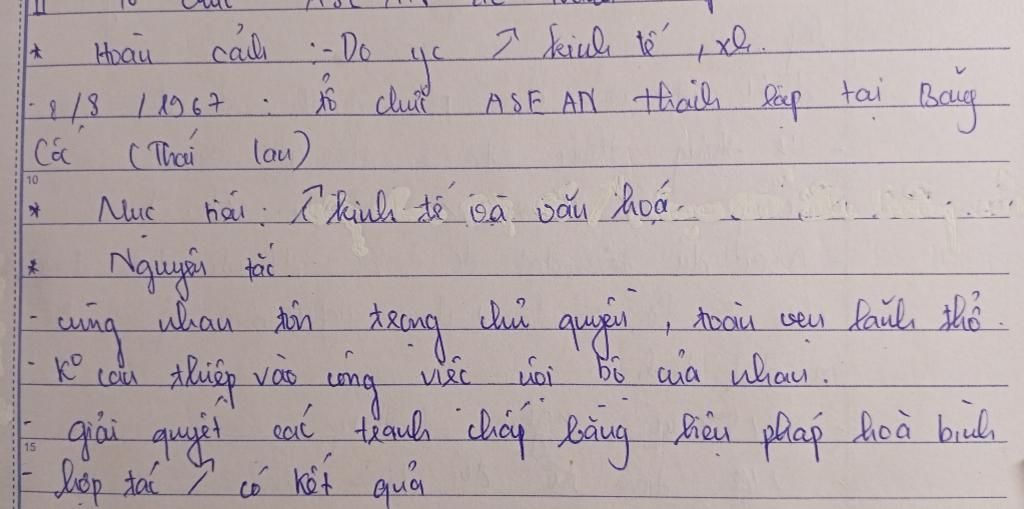 II
* Hoàn cảnh :- Do yc ↗ kinh tế, xh.
- 8/8/1967 : tổ chức ASEAN thành lập tại Băng
Cốc (Thái lan)
* Mục tiêu : ↗ kinh tế và văn hoá.
* Nguyên tắc
- cùng nhau tôn trọng chủ quyền, toàn vẹn lãnh thổ.
- K° can thiệp vào công việc nội bộ của nhau.
- giải quyết các tranh chấp bằng biện pháp hoà bình
- hợp tác ↗ có kết quả